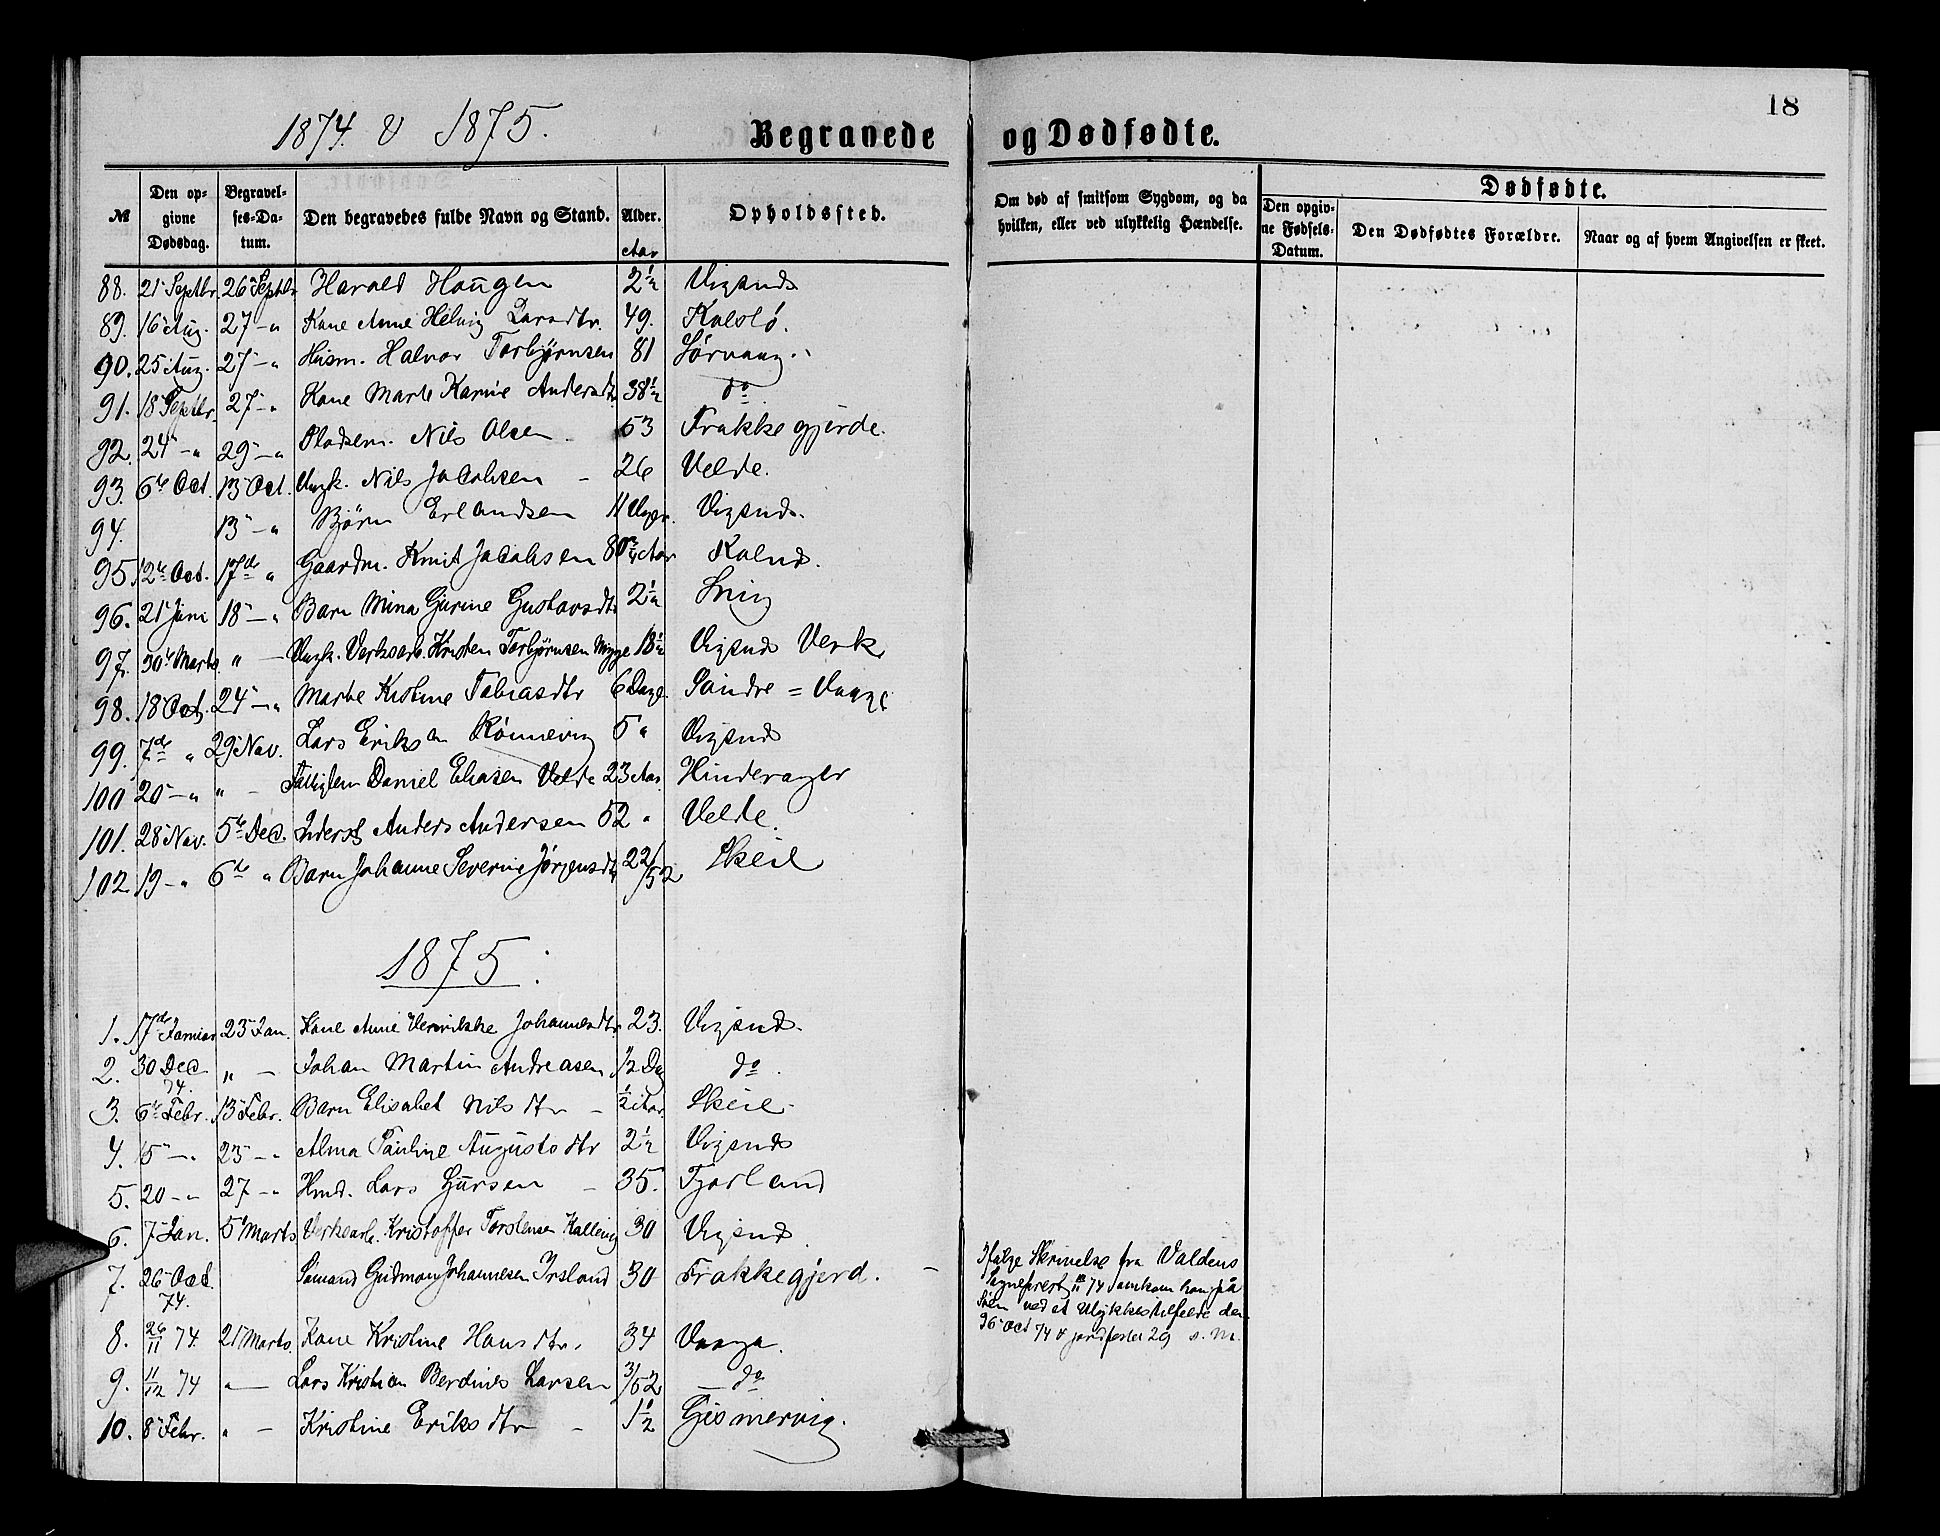 1874. & 1875.
Begravede og Dødfødte.
18
№
Den opgivne Dødsdag.
Begravelses-Datum.
Den begravedes fulde Navn og Stand.
Alder.
Aar
Opholdssted.
Om død af smitsom Sygdom, og da hvilken, eller ved ulykkelig Hændelse.
Dødfødte.
Den opgivne Fødsels-Datum.
Den Dødfødtes Forældre.
Naar og af hvem Angivelsen er skeet.
88. 21 Septbr. 26 Septbr Harald Haugen 2½ Vigsnds
89. 16 Aug. 27 - " Kone Anne Helvig Larsdtr. 49. Kalstø.
90. 25 Aug. 27 - " Husm. Halvor Torbjørnsen 81 Sørvaag.
91. 18 Septbr. 27 - " Kone Marte Karine Andersdtr 38½ do
92. 24 - " 29 - " Pladsm. Nils Olsen 53 Frakkegjerde.
93. 6te Oct. 13 Oct. Ungk. Nils Jacobsen - 26 Velde.
94. 13 - " Bjørn Erlandsen 11 Uger. Vigsnds.
95. 12te Oct. 17de " Gaardm. Knut Jacobsen 80¾ Aar Kolnds.
96. 21 Juni 18 - " Barn Mina Gurine Gustavsdtr 2½ Snig
97. 30te Marts " - Ungk. Verksarb. Kristen Torbjørnsen Mygge 18½ Vigsnds Verk
98. 18 Oct. 24 - " Marte Kristine Tobiasdtr 6 Dage Søndre = Vaage
99. 7de " 29 Nov. Lars Eriksen Rønnevig 5 " Vigsnds
100 20 - " " - Fattiglem Daniel Eliasen Velde 23 Aar. Hinderager
101. 28 Nov. 5te Dec. Inderst Anders Andersen 52 " Velde.
102. 19 - " 6te " Barn Johanne Severine Jørgensdtr 22/52 Skeie
1875.
1. 17de Januar 23 Jan. Kone Anne Verivikke Johannesdtr. 23. Vigsnds.
2. 30 Dec 74. " - Johan Martin Andreasen ½ Dag do.
3. 6te Febr. 13 Febr. Barn Elisabet Nilsdtr - ½ Aar. Skeie.
4. 15 - " 23 - " Alma Pauline Augustsdtr 2½ Vigsnds
5. 20 - " 27 - " Hmd. Lars Gursen - 35. Tjorland
6. 7 Jan. 5 Marts Verksarb. Kristoffer Torstensen Kallevig 30 Vigsnds.
7. 26 Oct. 74. Sømand Gudmon Johannesen Irsland 30 Frakkegjerd. -
Ifølge Skrivelse fra Valdens
Sogneprest 74 omkom han paa
Søen ved et Ulykkestilfælde den
26 Oct 74 & jordfestet 29 s. M.
8. 26/11 74. 21 Marts. Kone Kristine Hansdtr. 34 Vaage.
9. 11/12 74 " - Lars Kristian Berdines Larsen 3/52 do
10. 8 Febr. " - Kristine Eriksdtr - 1½ Gismervig.